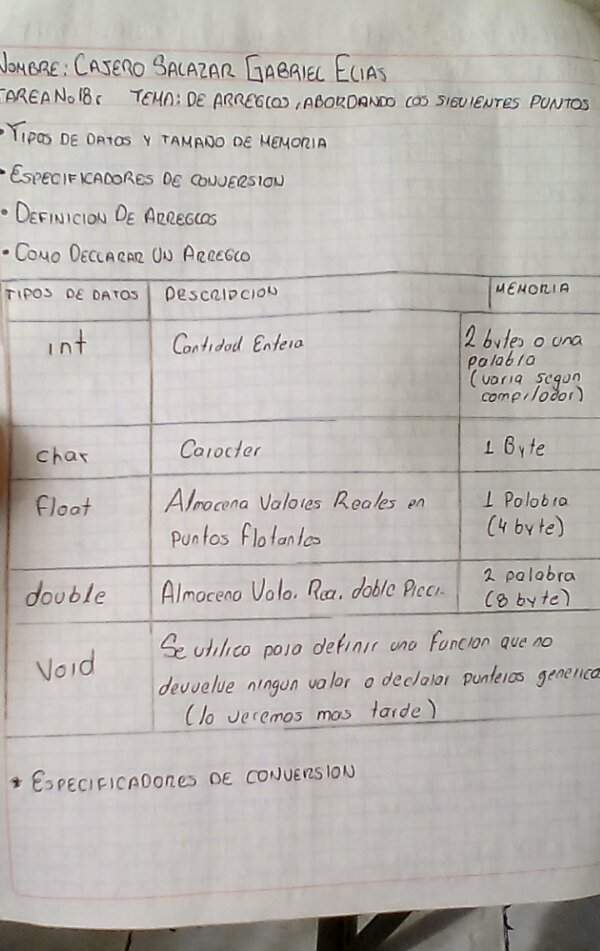 NOMBRE: CAJERO SALAZAR GABRIEL ELIAS
TAREA No 18: TEMA: DE ARREGLOS, ABORDANDO LOS SIGUIENTES PUNTOS
• TIPOS DE DATOS Y TAMAÑO DE MEMORIA
• ESPECIFICADORES DE CONVERSION
• DEFINICION DE ARREGLOS
• COMO DECLARAR UN ARREGLO
TIPOS DE DATOS DESCRIPCION MEMORIA
int Cantidad Entera 2 bytes o una
palabra
(varia segun
compilador)
char Caracter 1 Byte
float Almacena Valores Reales en 1 Palabra
puntos flotantes (4 byte)
double Almacena Valo. Rea. doble Preci. 2 palabra
(8 byte)
Void Se utilica para definir una funcion que no
devuelve ningun valor o declarar punteros generica
(lo veremos mas tarde)
* ESPECIFICADORES DE CONVERSION